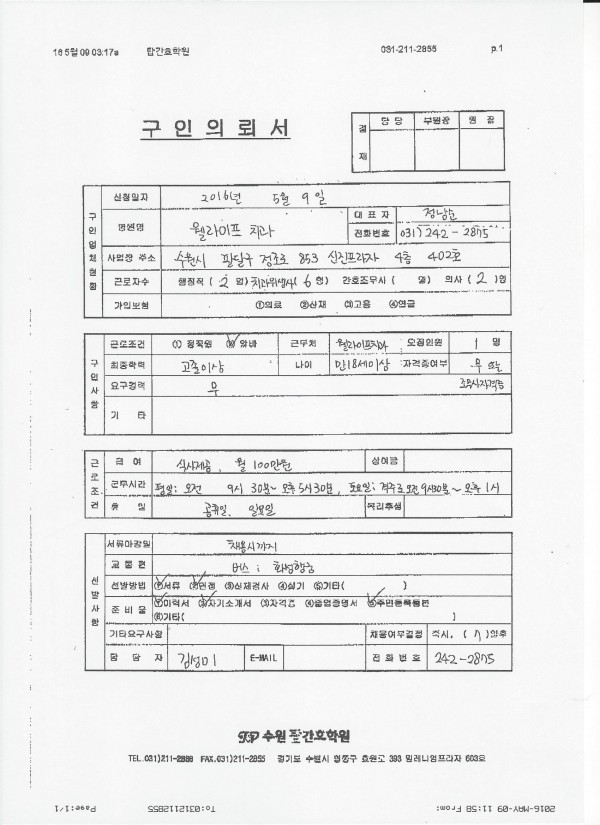 16 5월 09 03:17a 탑간호학원 031-211-2855 p.1
구 인 의 뢰 서
결재 담당 부원장 원장
구인업체현황
신청일자 2016년 5월 9일
병원명 웰라이프 치과 대표자 정남순
전화번호 031) 242-2875
사업장 주소 수원시 팔달구 정조로 853 신진프라자 4층 402호
근로자수 행정직 ( 2 명) 치과위생사( 6 명) 간호조무사 ( 명) 의사 ( 2 )명
가입보험 ①의료 ②산재 ③고용 ④연금
구인사항
근로조건 (1) 정직원 (2) 알바 근무처 웰라이프치과 모집인원 1 명
최종학력 고졸이상 나이 만18세이상 자격증여부 무 또는
요구경력 무 조무사자격증
기 타
근로조건
급 여 식사제공, 월 100만원 상여금
근무시간 평일: 오전 9시 30분~ 오후 5시 30분, 토요일: 격주로 오전 9시30분 ~ 오후 1시
휴 일 공휴일, 일요일 복리후생
선발사항
서류마감일 채용시까지
교통편 버스 : 화성행궁
선발방법 ①서류 ②면접 ③신체검사 ④실기 ⑤기타( )
준비물 ①이력서 ②자기소개서 ③자격증 ④졸업증명서 ⑤주민등록등본
⑥기타( )
기타요구사항 채용여부결정 즉시, ( 7 )일후
담 당 자 김성미 E-MAIL 전 화 번 호 242-2875
TOP 수원 탑간호학원
TEL.031)211-2888 FAX.031)211-2855 경기도 수원시 팔달구 효원로 393 밀레니엄프라자 603호
2016-MAY-09 11:58 From: To:0312112855 Page:1/1